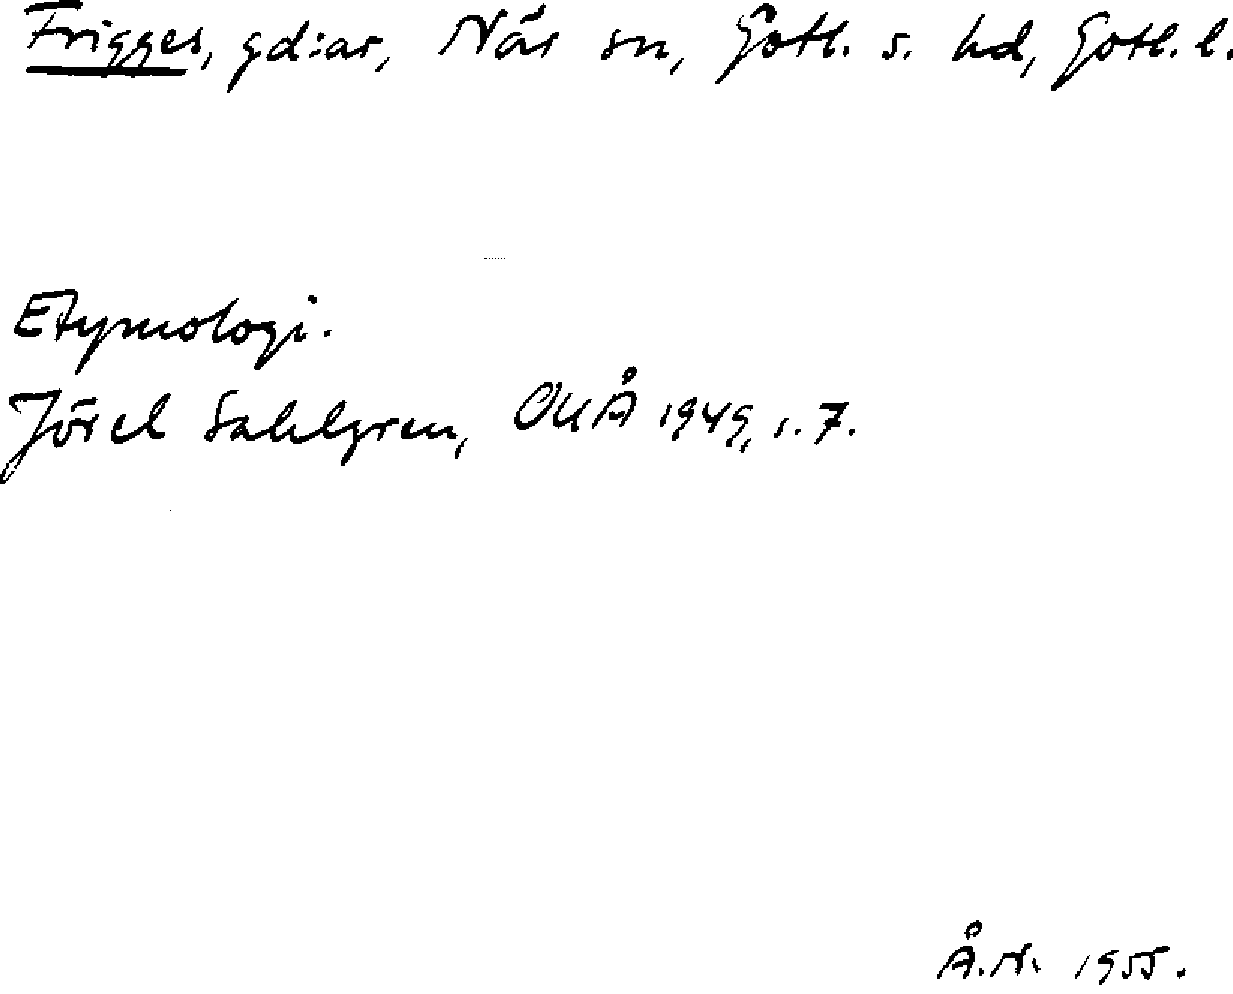 Frigges, gd:ar, När sn, Gotl. s. hd, Gotl. l.
Etymologi.
Jöran Sahlgren, OUÅ 1949, s. 7.
Å.N. 1955.